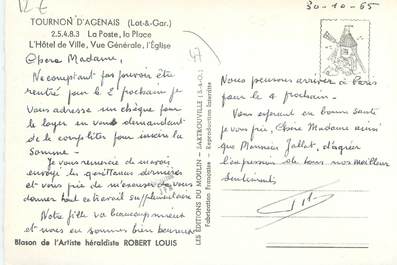 30-10-65
TOURNON D'AGENAIS (Lot-&-Gar.)
2.5.4.8.3 La Poste, la Place
L'Hôtel de Ville, Vue Générale, l'Église
Chère Madame,
Ne comptant pas pouvoir être
rentré pour le 2 prochain je
vous adresse un chèque pour
le loyer en vous demandant
de le compléter pour inscrire la
somme -
Je vous remercie de m'avoir
envoyé les quittances dernières
et vous prie de m'excuser de vous
donner tout ce travail supplémentaire
Notre fille va beaucoup mieux
et nous en sommes bien heureux
Blason de l'Artiste héraldiste ROBERT LOUIS
LES ÉDITIONS DU MOULIN - SARTROUVILLE (S.-&-O.)
Fabrication Française - Reproduction Interdite
Nous pensons arriver à Paris
pour le 4 prochain -
Vous espérant en bonne santé
je vous prie, Chère Madame ainsi
que Monsieur Jallat, d'agréer
l'expression de tous nos meilleurs
sentiments